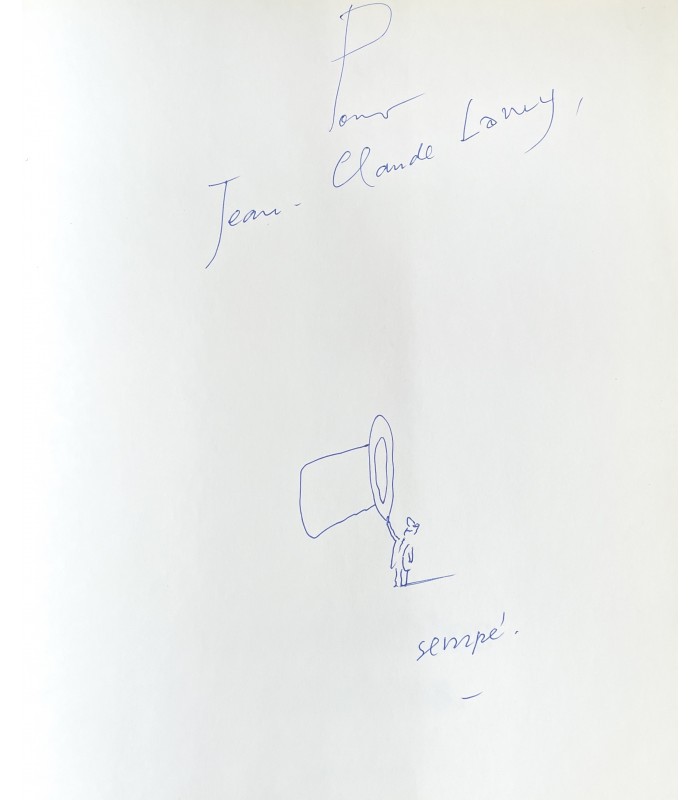 Pour
Jean-Claude
sempé.